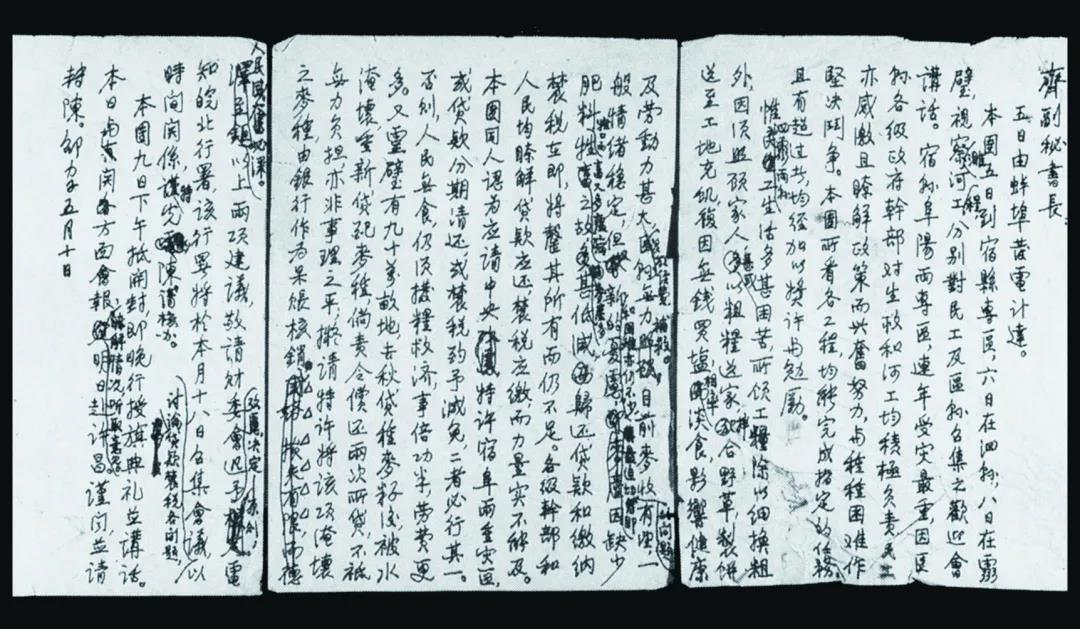 齊副秘書長：
五日由蚌埠黃電計達。
本團五日到宿縣專區，六日在泗縣，八日在靈
璧，視察河工工程，分別對民工及區縣召集之歡迎會
講話。宿縣阜陽兩專區，連年受灾最重，因區
縣各級政府幹部對生救和河工均積極負責，民工
亦感激且瞭解政策而興奮努力，与種種困难作
堅决鬥争。本團所看各工程，均能完成指定的任務
且有超过者，均經加以獎許与勉勵。
惟民工生活多甚困苦，所領工糧除以細換粗
外，因須照顧家人，多以粗糧送家，或合野草製餅
送至工地充飢，復因無錢買塩，相率淡食，影響健康
及勞動力甚大，無力解救。目前麥收有望，一
般情緒穩定，但新的憂慮，因缺少
肥料之故，甚低減，歸还貸款和繳納
農税立即，將罄其所有而仍不足。各級幹部和
人民均瞭解貸款应还農税应繳而力量实不能及。
本團同人認为应請中央特許宿阜兩重灾區，
或貸款分期清还，或農税酌予減免，二者必行其一。
否則，人民無食，仍須撥糧救济，事倍功半，勞費更
多。又靈璧有九十萬畝地，去秋貸種麥籽後，被水
淹壞重新貸配麥種，倘責令償还兩次所貸，不祇
無力負担亦非事理之平，擬請特許將該項淹壞
之麥種，由銀行作为呆賬核銷，而德
人民感奮必深。
澤至鉅。以上兩項建議，敬請財委會迅予電
知皖北行署，該行署將於本月十八日召集會議，討論貸款農税各问題，以
時间関係，謹先特陳請核办。
本團九日下午抵開封，即晚行授旗典礼並講話。
本日与有関各方面會報，瞭解情况，听取意見。明日赴許昌。謹闻，並請
轉陳。邵力子五月十日